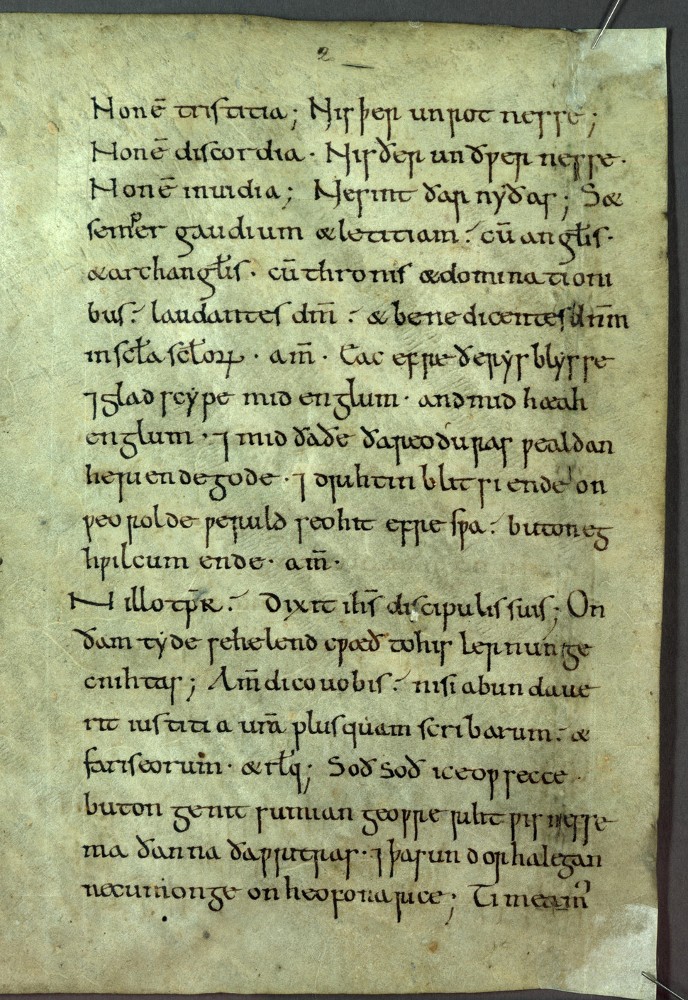 2
Non ē tristitia; Nis þer unrot nesse;
Non ē discordia· Nis ðer unðƿer nesse·
Non ē inuidia; Ne sint ðar nyðas; Sæ
semper gaudium & letitiam· cū angl̄is·
& archangl̄is· cū thronis & dominationi
bus· laudantes dn̄m· & benedicentes dn̄m
in scl̄a scl̄oꝝ· am̄· Eac efre ðer ys blysse
⁊ glad scype mid englum· and mid hæah
englum· ⁊ mid ðaðe ðar eoduras ƿealdan
heri ende gode· ⁊ drihtin blit si ende on
ƿeorolde ƿeruld seo hit efre sƿa· buton eg
hƿilcum ende· am̄·
N illo tp̄r· Dixit ih̄s discipulis suis; On
ðam tyde se helend cƿæð to his lernunge
cnihtas; Am̄ dico uobis· nisi abundaue
rit iustitia ur̄a plus quam scribarum· &
fariseorum· & rl̄q; Soð soð ic eoƿ secce·
buton genit sumian geoƿre riht ƿis nesse
ma ðanna ða ƿritras· ⁊ þa sundor halegan
ne cumonge on heofona rice; Timeam̄